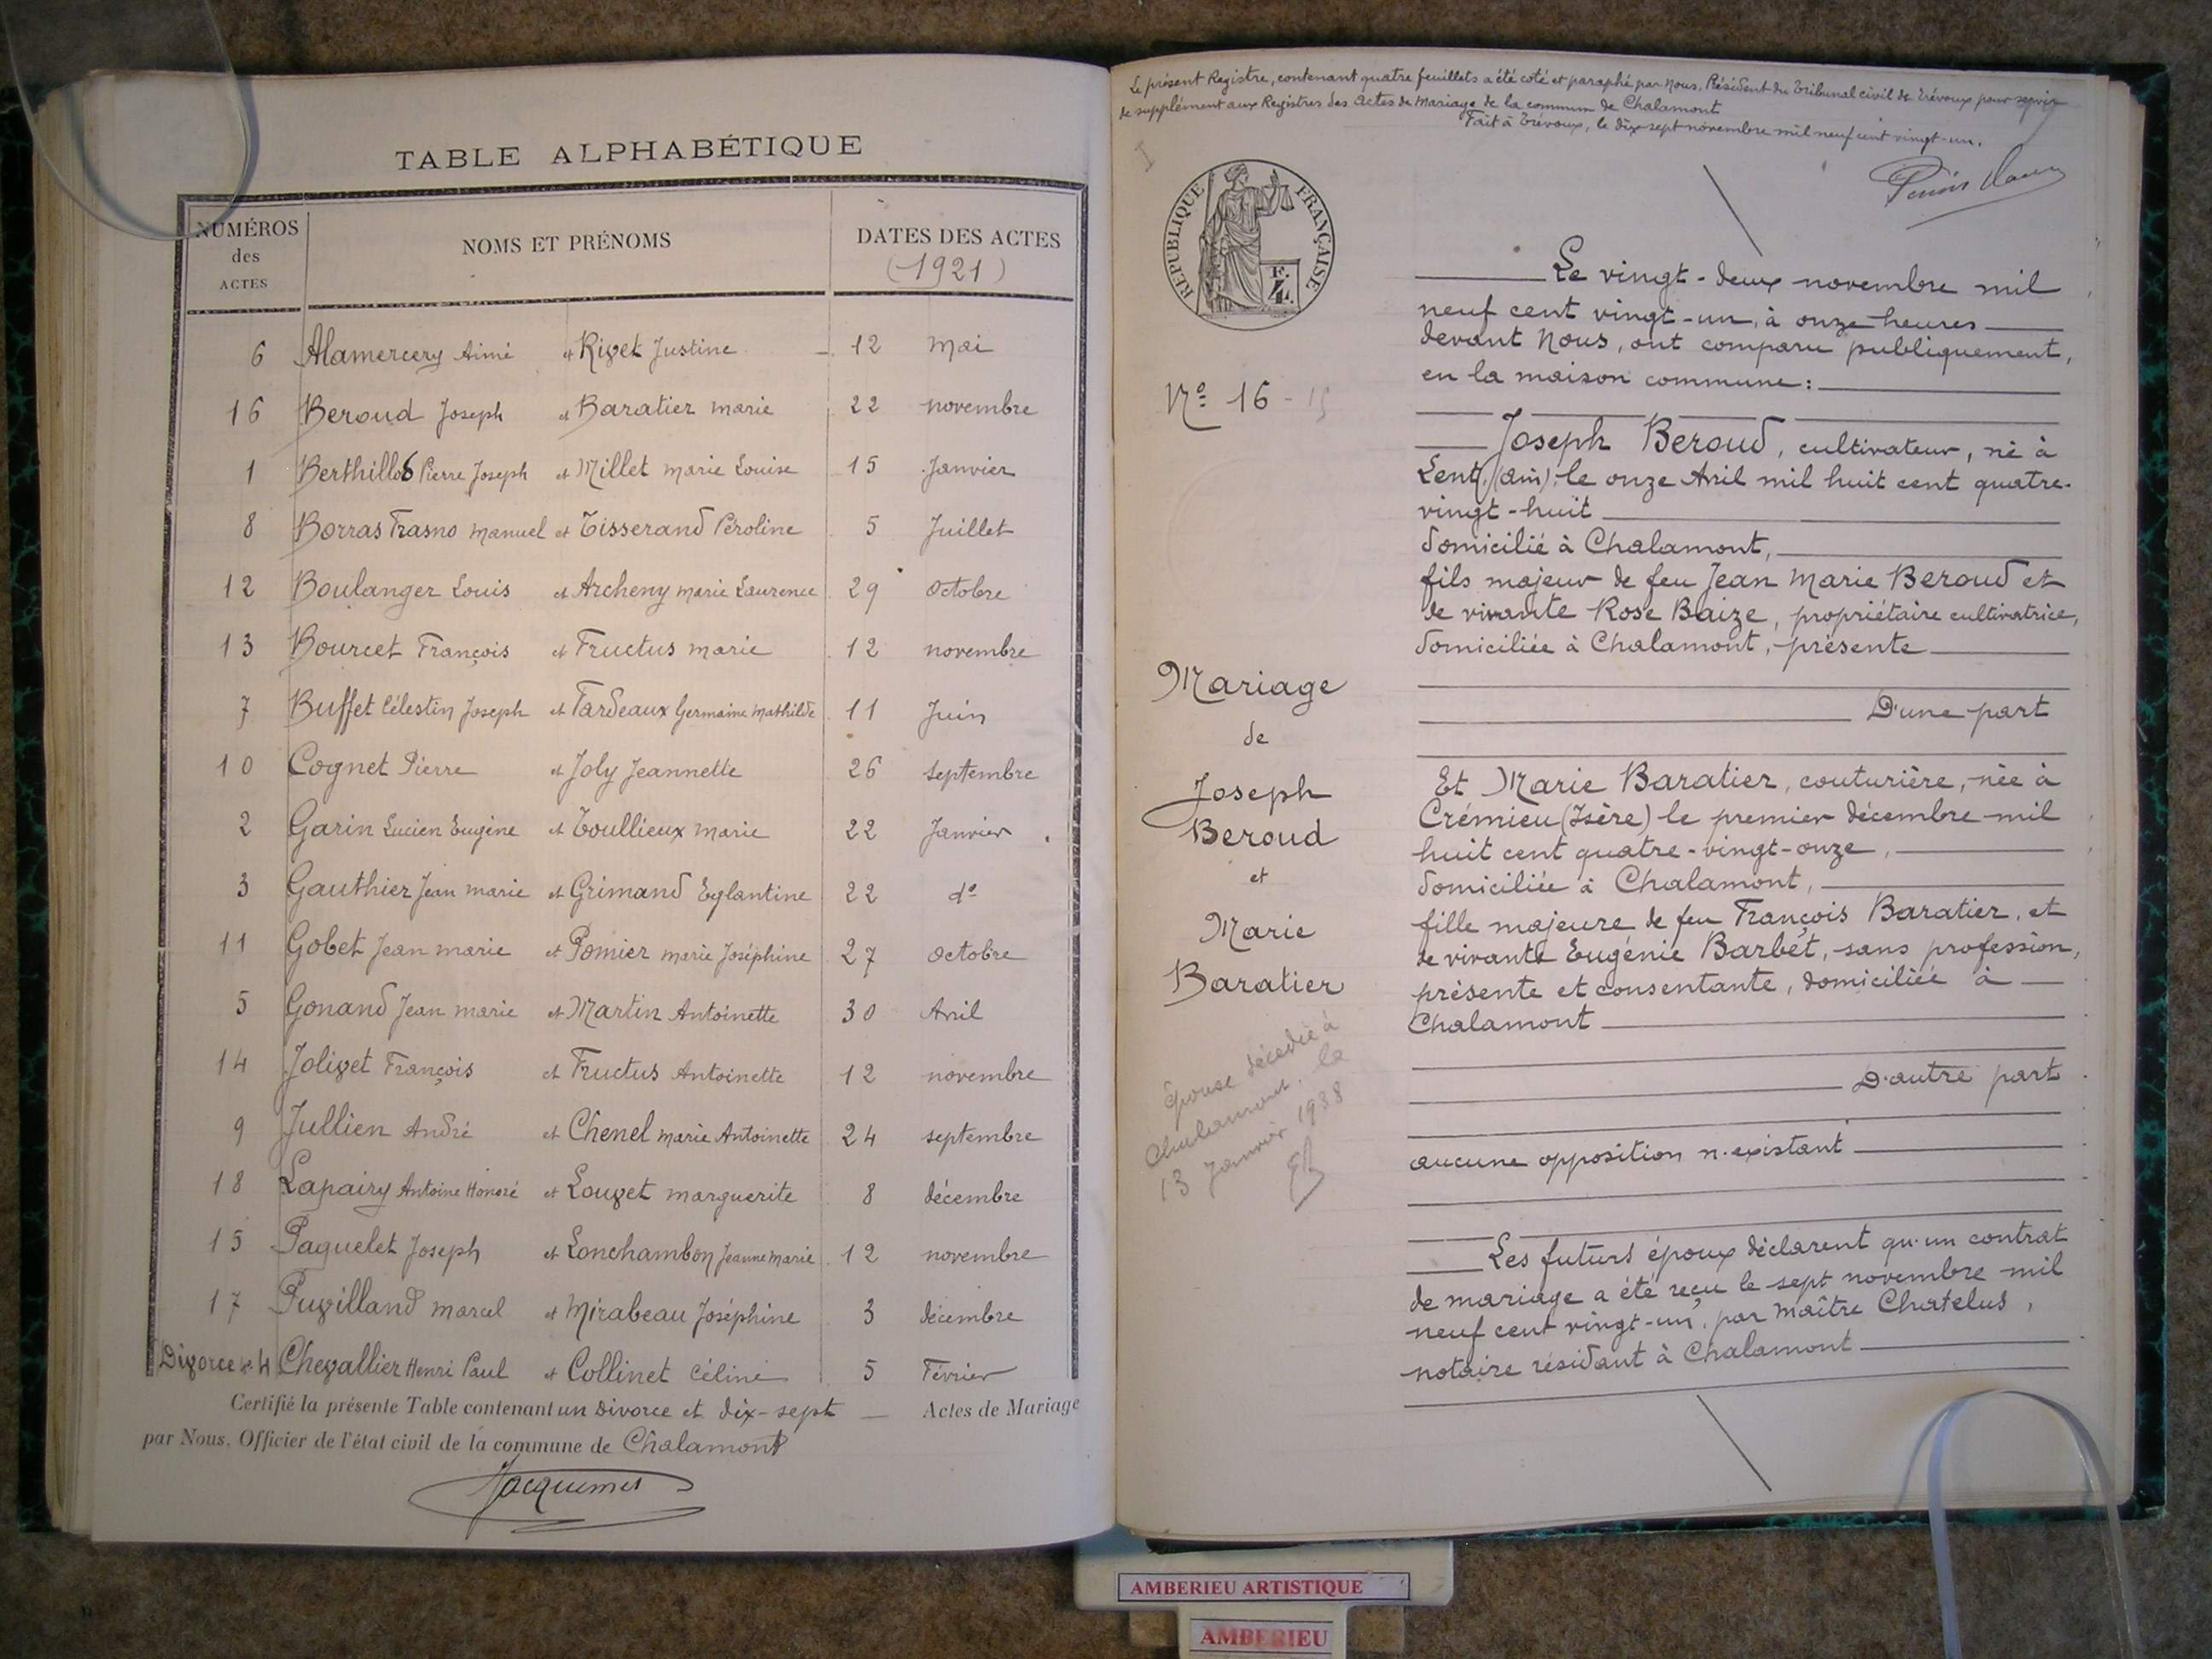 TABLE ALPHABÉTIQUE
NUMÉROS des ACTES NOMS ET PRÉNOMS DATES DES ACTES (1921)
6 Alamercery Aimé et Rivet Justine 12 Mai
16 Beroud Joseph et Baratier marie 22 novembre
1 Berthillot Pierre Joseph et Millet marie Louise 15 Janvier
8 Borras Frasno manuel et Tisserand Péroline 5 Juillet
12 Boulanger Louis et Archeny marie Laurence 29 Octobre
13 Bourcet François et Fructus marie 12 novembre
7 Buffet Célestin Joseph et Tardeaux Germaine Mathilde 11 Juin
10 Cognet Pierre et Joly Jeannette 26 septembre
2 Garin Lucien Eugène et Toullieux marie 22 Janvier
3 Gauthier Jean marie et Grimand Eglantine 22 do
11 Gobet Jean marie et Pomier marie Joséphine 27 octobre
5 Gonand Jean marie et Martin Antoinette 30 Avril
14 Jolivet François et Fructus Antoinette 12 novembre
9 Jullien André et Chenel marie Antoinette 24 septembre
18 Lapairy Antoine Honoré et Louvet marguerite 8 décembre
15 Paquelet Joseph et Lonchambon Jeanne marie 12 novembre
17 Puvilland marcel et Mirabeau Joséphine 3 décembre
Divorce no 4 Chevallier Henri Paul et Collinet Céline 5 Février
Certifié la présente Table contenant un Divorce et dix-sept — Actes de Mariage
par Nous, Officier de l'état civil de la commune de Chalamont
Jacquemet
Le présent Registre, contenant quatre feuillets a été coté et paraphé par Nous, Président du Tribunal civil de Trévoux pour servir
de supplément aux Registres des actes de Mariage de la commune de Chalamont
Fait à Trévoux, le dix sept novembre mil neuf cent vingt-un.
RÉPUBLIQUE FRANÇAISE
No 16 - 15
Mariage
de
Joseph
Beroud
et
Marie
Baratier
Epouse décédée à
Chalamont, le
13 Janvier 1938
Le vingt-deux novembre mil
neuf cent vingt-un, à onze heures
devant Nous, ont comparu publiquement,
en la maison commune :
Joseph Beroud, cultivateur, né à
Lent, (ain), le onze Avril mil huit cent quatre-
vingt-huit
domicilié à Chalamont,
fils majeur de feu Jean Marie Beroud et
de vivante Rose Baize, propriétaire cultivatrice,
domiciliée à Chalamont, présente
D'une part
Et Marie Baratier, couturière, née à
Crémieu (Isère) le premier décembre mil
huit cent quatre-vingt-onze,
domiciliée à Chalamont,
fille majeure de feu François Baratier, et
de vivante Eugénie Barbet, sans profession,
présente et consentante, domiciliée à
Chalamont
D'autre part
aucune opposition n'existant
Les futurs époux déclarent qu'un contrat
de mariage a été reçu le sept novembre mil
neuf cent vingt-un, par Maître Chatelus,
notaire résidant à Chalamont
AMBERIEU ARTISTIQUE
AMBERIEU